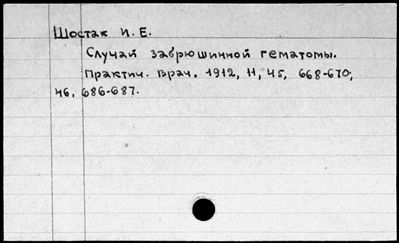 Шостак И. Е.
Случай забрюшинной гематомы.
Практич. Врач, 1912, 11, 45, 668-670,
46, 686-687.